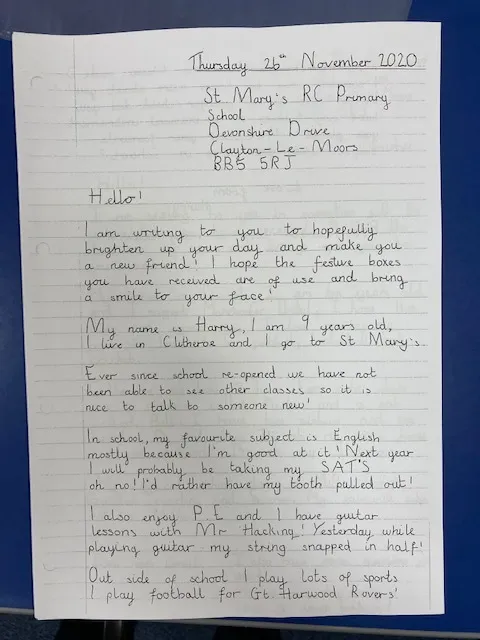 Thursday 26th November 2020
St Mary's RC Primary
School
Devonshire Drive
Clayton-Le-Moors
BB5 5RJ
Hello!
I am writing to you to hopefully
brighten up your day and make you
a new friend! I hope the festive boxes
you have received are of use and bring
a smile to your face!
My name is Harry, I am 9 years old,
I live in Clitheroe and I go to St Mary's.
Ever since school re-opened we have not
been able to see other classes so it is
nice to talk to someone new!
In school, my favourite subject is English
mostly because I'm good at it! Next year
I will probably be taking my SAT'S
oh no! I'd rather have my tooth pulled out!
I also enjoy P.E and I have guitar
lessons with Mr Hacking! Yesterday while
playing guitar my string snapped in half!
Out side of school I play lots of sports
I play football for Gt. Harwood Rovers!